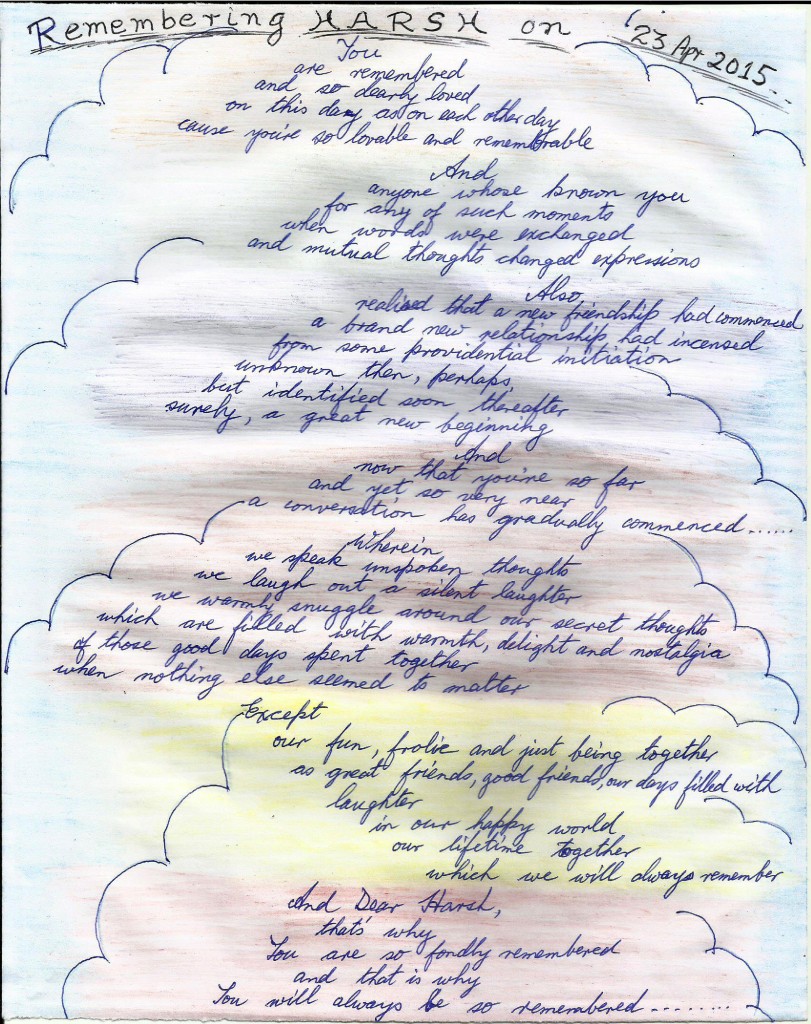 Remembering HARSH on 23 Apr 2015...
You
are remembered
and so dearly loved
on this day as on each other day
cause you're so lovable and rememberable
And
anyone whose known you
for any of such moments
when words were exchanged
and mutual thoughts changed expressions
Also,
realised that a new friendship had commenced
a brand new relationship had incensed
from some providential initiation
unknown then, perhaps,
but identified soon thereafter
surely, a great new beginning
And
now that you're so far
and yet so very near
a conversation has gradually commenced......
Wherein
we speak unspoken thoughts
we laugh out a silent laughter
we warmly snuggle around our secret thoughts
which are filled with warmth, delight and nostalgia
of those good days spent together
when nothing else seemed to matter
Except
our fun, frolic and just being together
as great friends, good friends, our days filled with
laughter
in our happy world
our lifetime together
which we will always remember
And Dear Harsh,
that's why
You are so fondly remembered
and that is why
You will always be so remembered........